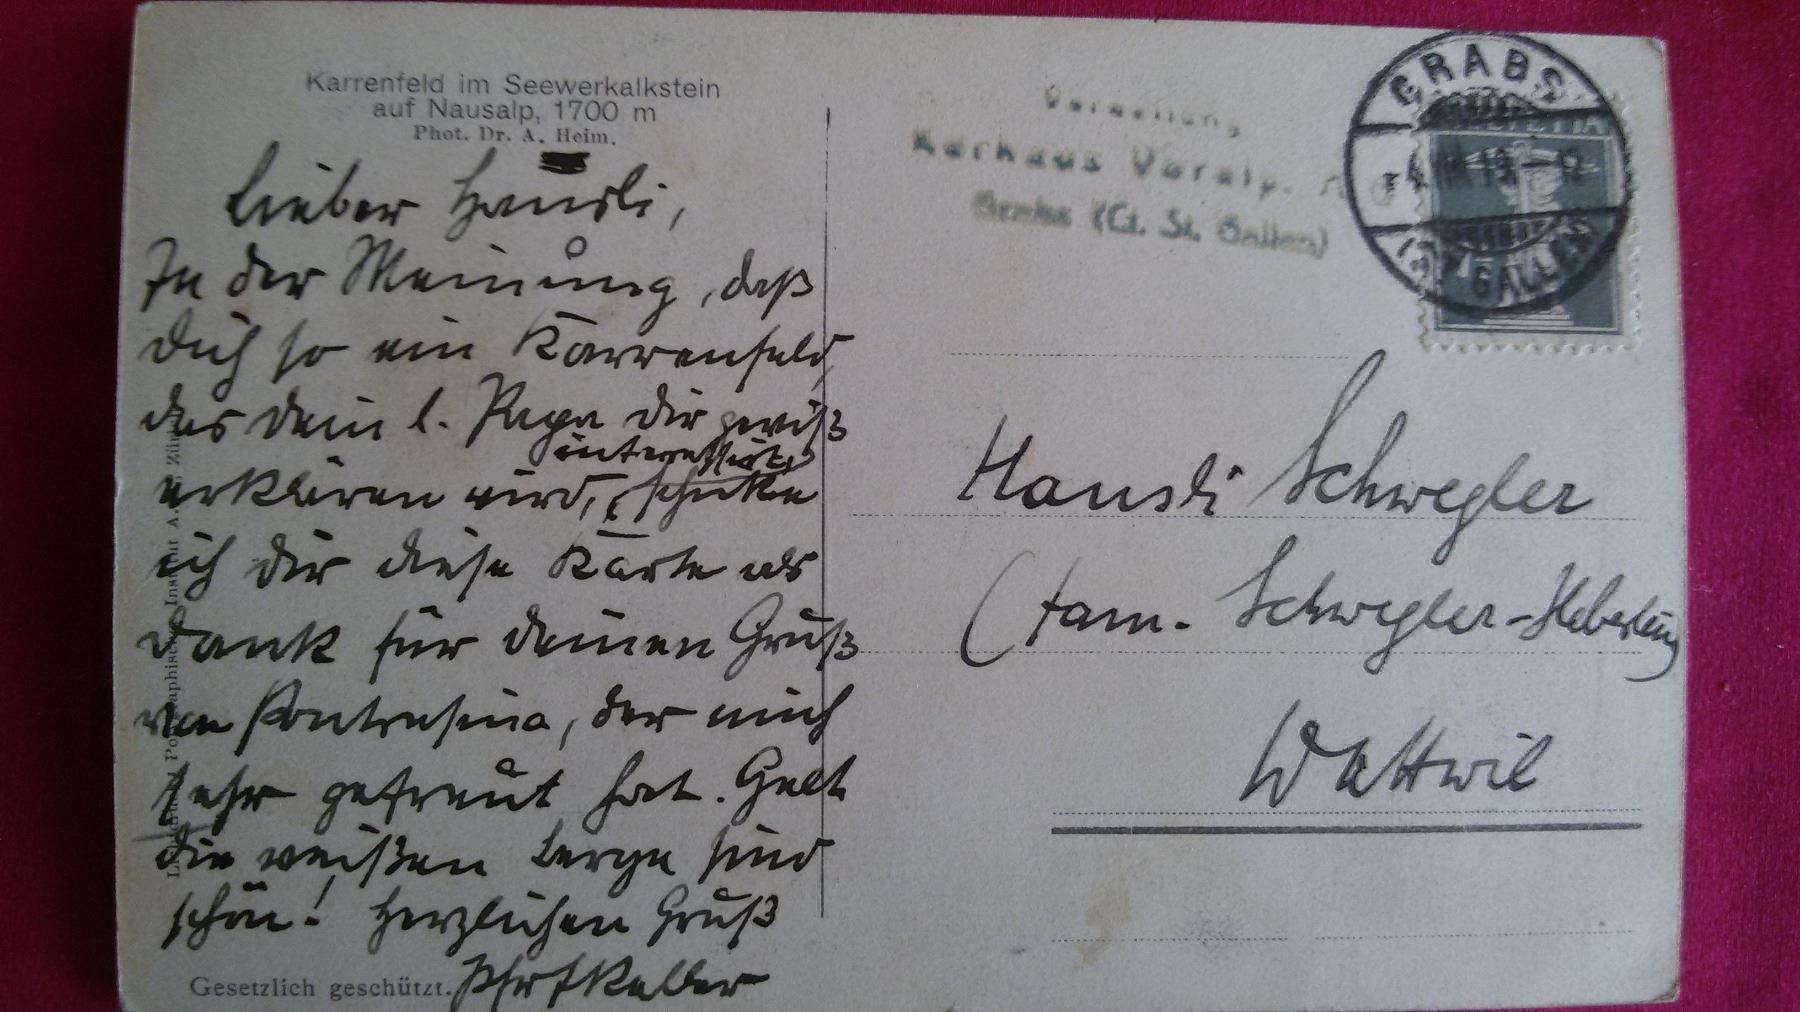 Karrenfeld im Seewerkalkstein
auf Nausalp, 1700 m
Phot. Dr. A. Heim.
Lieber Hansli,
In der Meinung, daß
dich so ein Karrenfeld,
das dein l. Papa dir gewiß
interessirt,
erklären wird, schicke
ich dir diese Karte als
Dank für deinen Gruß
von Pontresina, der mich
sehr gefreut hat. Gelt
die weißen Berge sind
schön! Herzlichen Gruß
Keller
Gesetzlich geschützt.
Kurhaus Voralp
Grabs (Ct. St. Gallen)
GRABS
HELVETIA
GALLEN
Hansli Schwegler
(Fam. Schwegler-Heberling
Wattwil